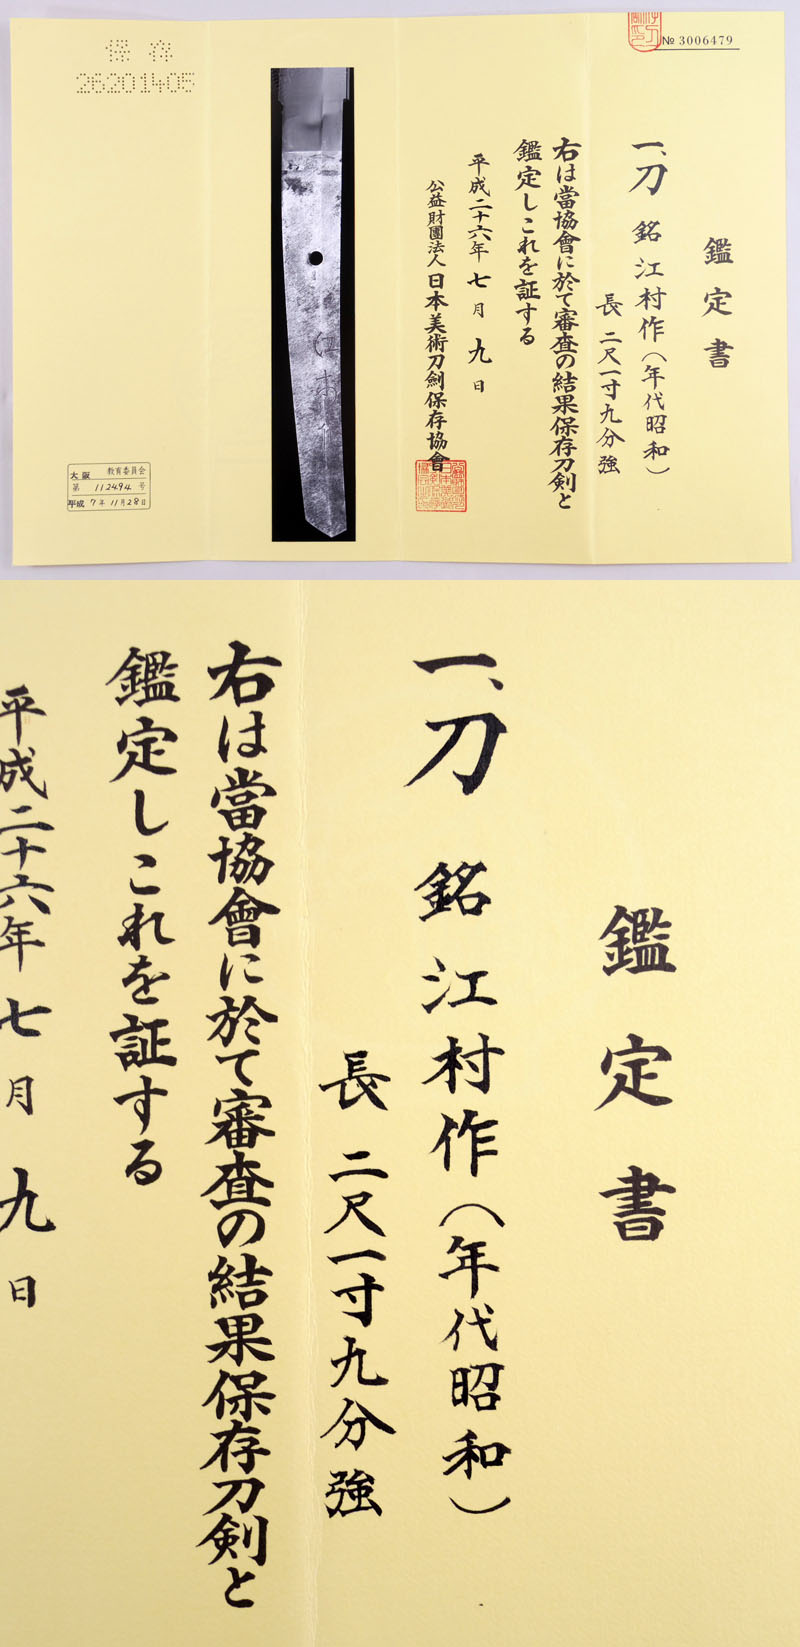 № 3006479
鑑定書
一、刀 銘 江村作(年代昭和)
長 二尺一寸九分強
右は當協會に於て審査の結果保存刀剣と
鑑定しこれを証する
平成二十六年 七月 九日
公益財團法人 日本美術刀劍保存協會
江村作
保存
26201405
大阪 教育委員会
第 112494 号
平成 7年 11月 28日
鑑定書
一、刀 銘 江村作(年代昭和)
長 二尺一寸九分強
右は當協會に於て審査の結果保存刀剣と
鑑定しこれを証する
平成二十六年 七月 九日